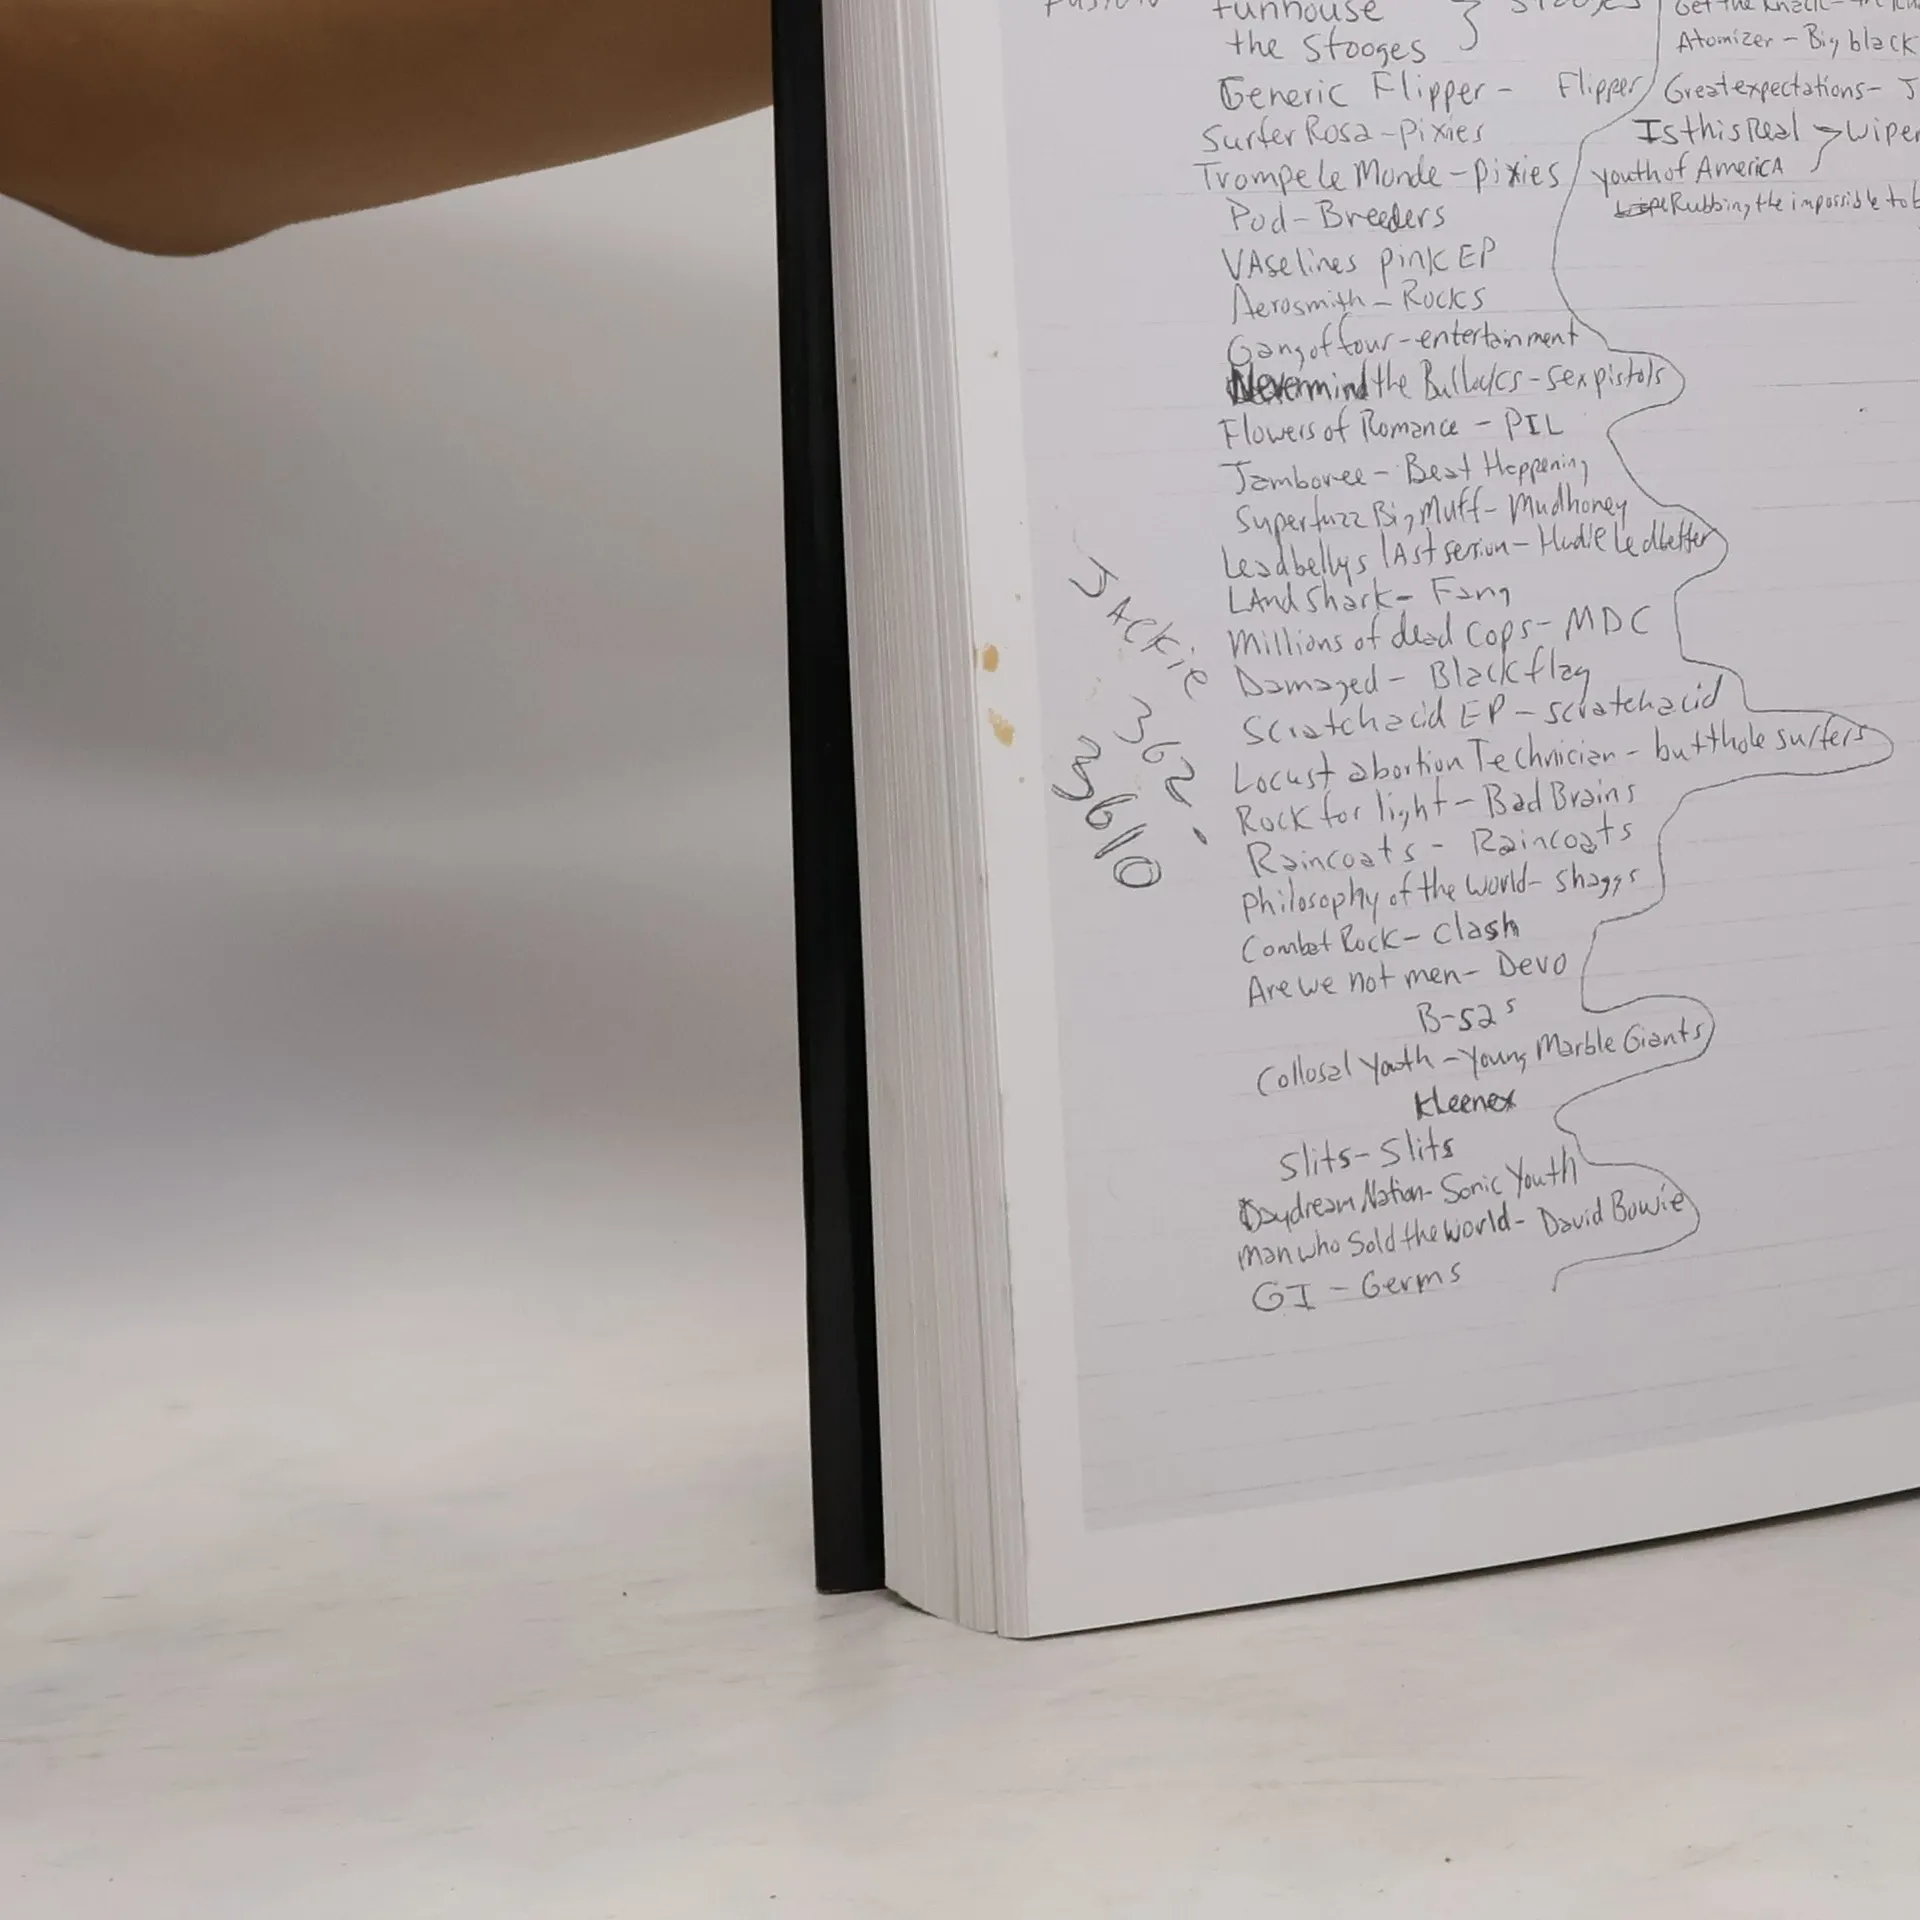 funhouse
the Stooges
Generic Flipper - Flipper
Surfer Rosa - pixies
Trompe le Monde - pixies
Pod - Breeders
VAselines pink EP
Aerosmith - Rocks
Gang of four - entertainment
Nevermind the Bullocks - sex pistols
Flowers of Romance - PIL
Jamboree - Beat Happening
Superfuzz Big Muff - Mudhoney
Leadbellys lAst session - Hudie Ledbetter
LAnd Shark - Fang
Millions of dead Cops - MDC
Damaged - Black flag
Scratch acid EP - scratch acid
Locust abortion Technician - butthole surfers
Rock for light - Bad Brains
Raincoats - Raincoats
Philosophy of the world - shaggs
Combat Rock - Clash
Are we not men - Devo
B-52s
Collosal Youth - Young Marble Giants
Kleenex
Slits - Slits
Daydream Nation - Sonic Youth
man who Sold the world - David Bowie
GI - Germs
Get the Knack -
Atomizer - Big black
Great expectations - J
Is this Real > wiper
youth of AmericA
Rubbing the impossible to b
JAckie
362.
3610